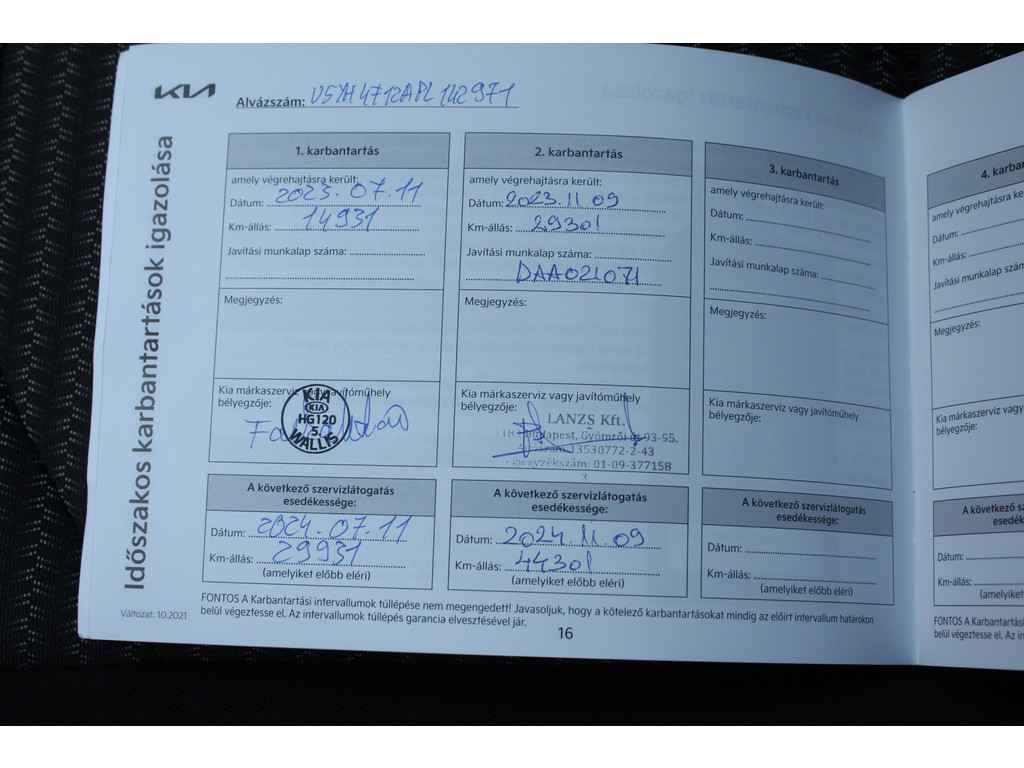 KIA
Alvázszám: U5YH4712APL142971
Időszakos karbantartások igazolása
1. karbantartás
amely végrehajtásra került:
Dátum: 2023.07.11
Km-állás: 14931
Javítási munkalap száma:
Megjegyzés:
Kia márkaszerviz vagy javítóműhely
bélyegzője:
KIA
KIA
HG120
5
WALLIS
A következő szervizlátogatás
esedékessége:
Dátum: 2024.07.11
Km-állás: 29931
(amelyiket előbb eléri)
2. karbantartás
amely végrehajtásra került:
Dátum: 2023.11.09
Km-állás: 29301
Javítási munkalap száma:
DAA021071
Megjegyzés:
Kia márkaszerviz vagy javítóműhely
bélyegzője:
LANZS Kft.
Budapest, Gyömrői út 93-95.
13530772-2-43
01-09-377158
A következő szervizlátogatás
esedékessége:
Dátum: 2024.11.09
Km-állás: 44301
(amelyiket előbb eléri)
3. karbantartás
amely végrehajtásra került:
Dátum:
Km-állás:
Javítási munkalap száma:
Megjegyzés:
Kia márkaszerviz vagy javítóműhely
bélyegzője:
A következő szervizlátogatás
esedékessége:
Dátum:
Km-állás:
(amelyiket előbb eléri)
FONTOS A Karbantartási intervallumok túllépése nem megengedett! Javasoljuk, hogy a kötelező karbantartásokat mindig az előírt intervallum határokon
belül végeztesse el. Az intervallumok túllépés garancia elvesztésével jár.
Változat: 10.2021
16
4. karban
amely végrehajtásra k
Dátum:
Km-állás:
Javítási munkalap szám
Megjegyzés:
Kia márkaszerviz vagy
bélyegzője:
A következő sz
esedék
Dátum:
Km-állás:
(amelyiket
FONTOS A Karbantartási
belül végeztesse el. Az in